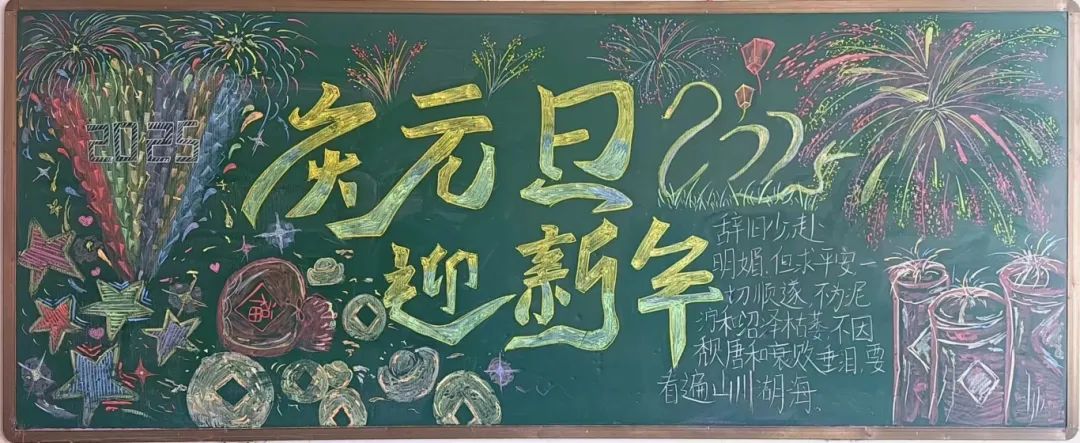 2025
庆元旦
迎新年
福
辞旧岁,赴
明媚.但求平安一
切顺遂,不为泥
泞和沼泽枯萎.不因
颓唐和衰败垂泪.要
看遍山川湖海.